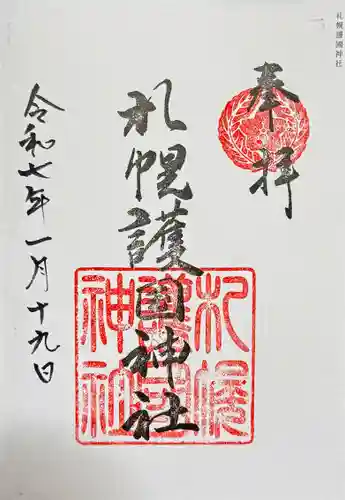 札幌護國神社
奉拝
札幌護国神社
札幌
護国
神社
令和七年一月十九日